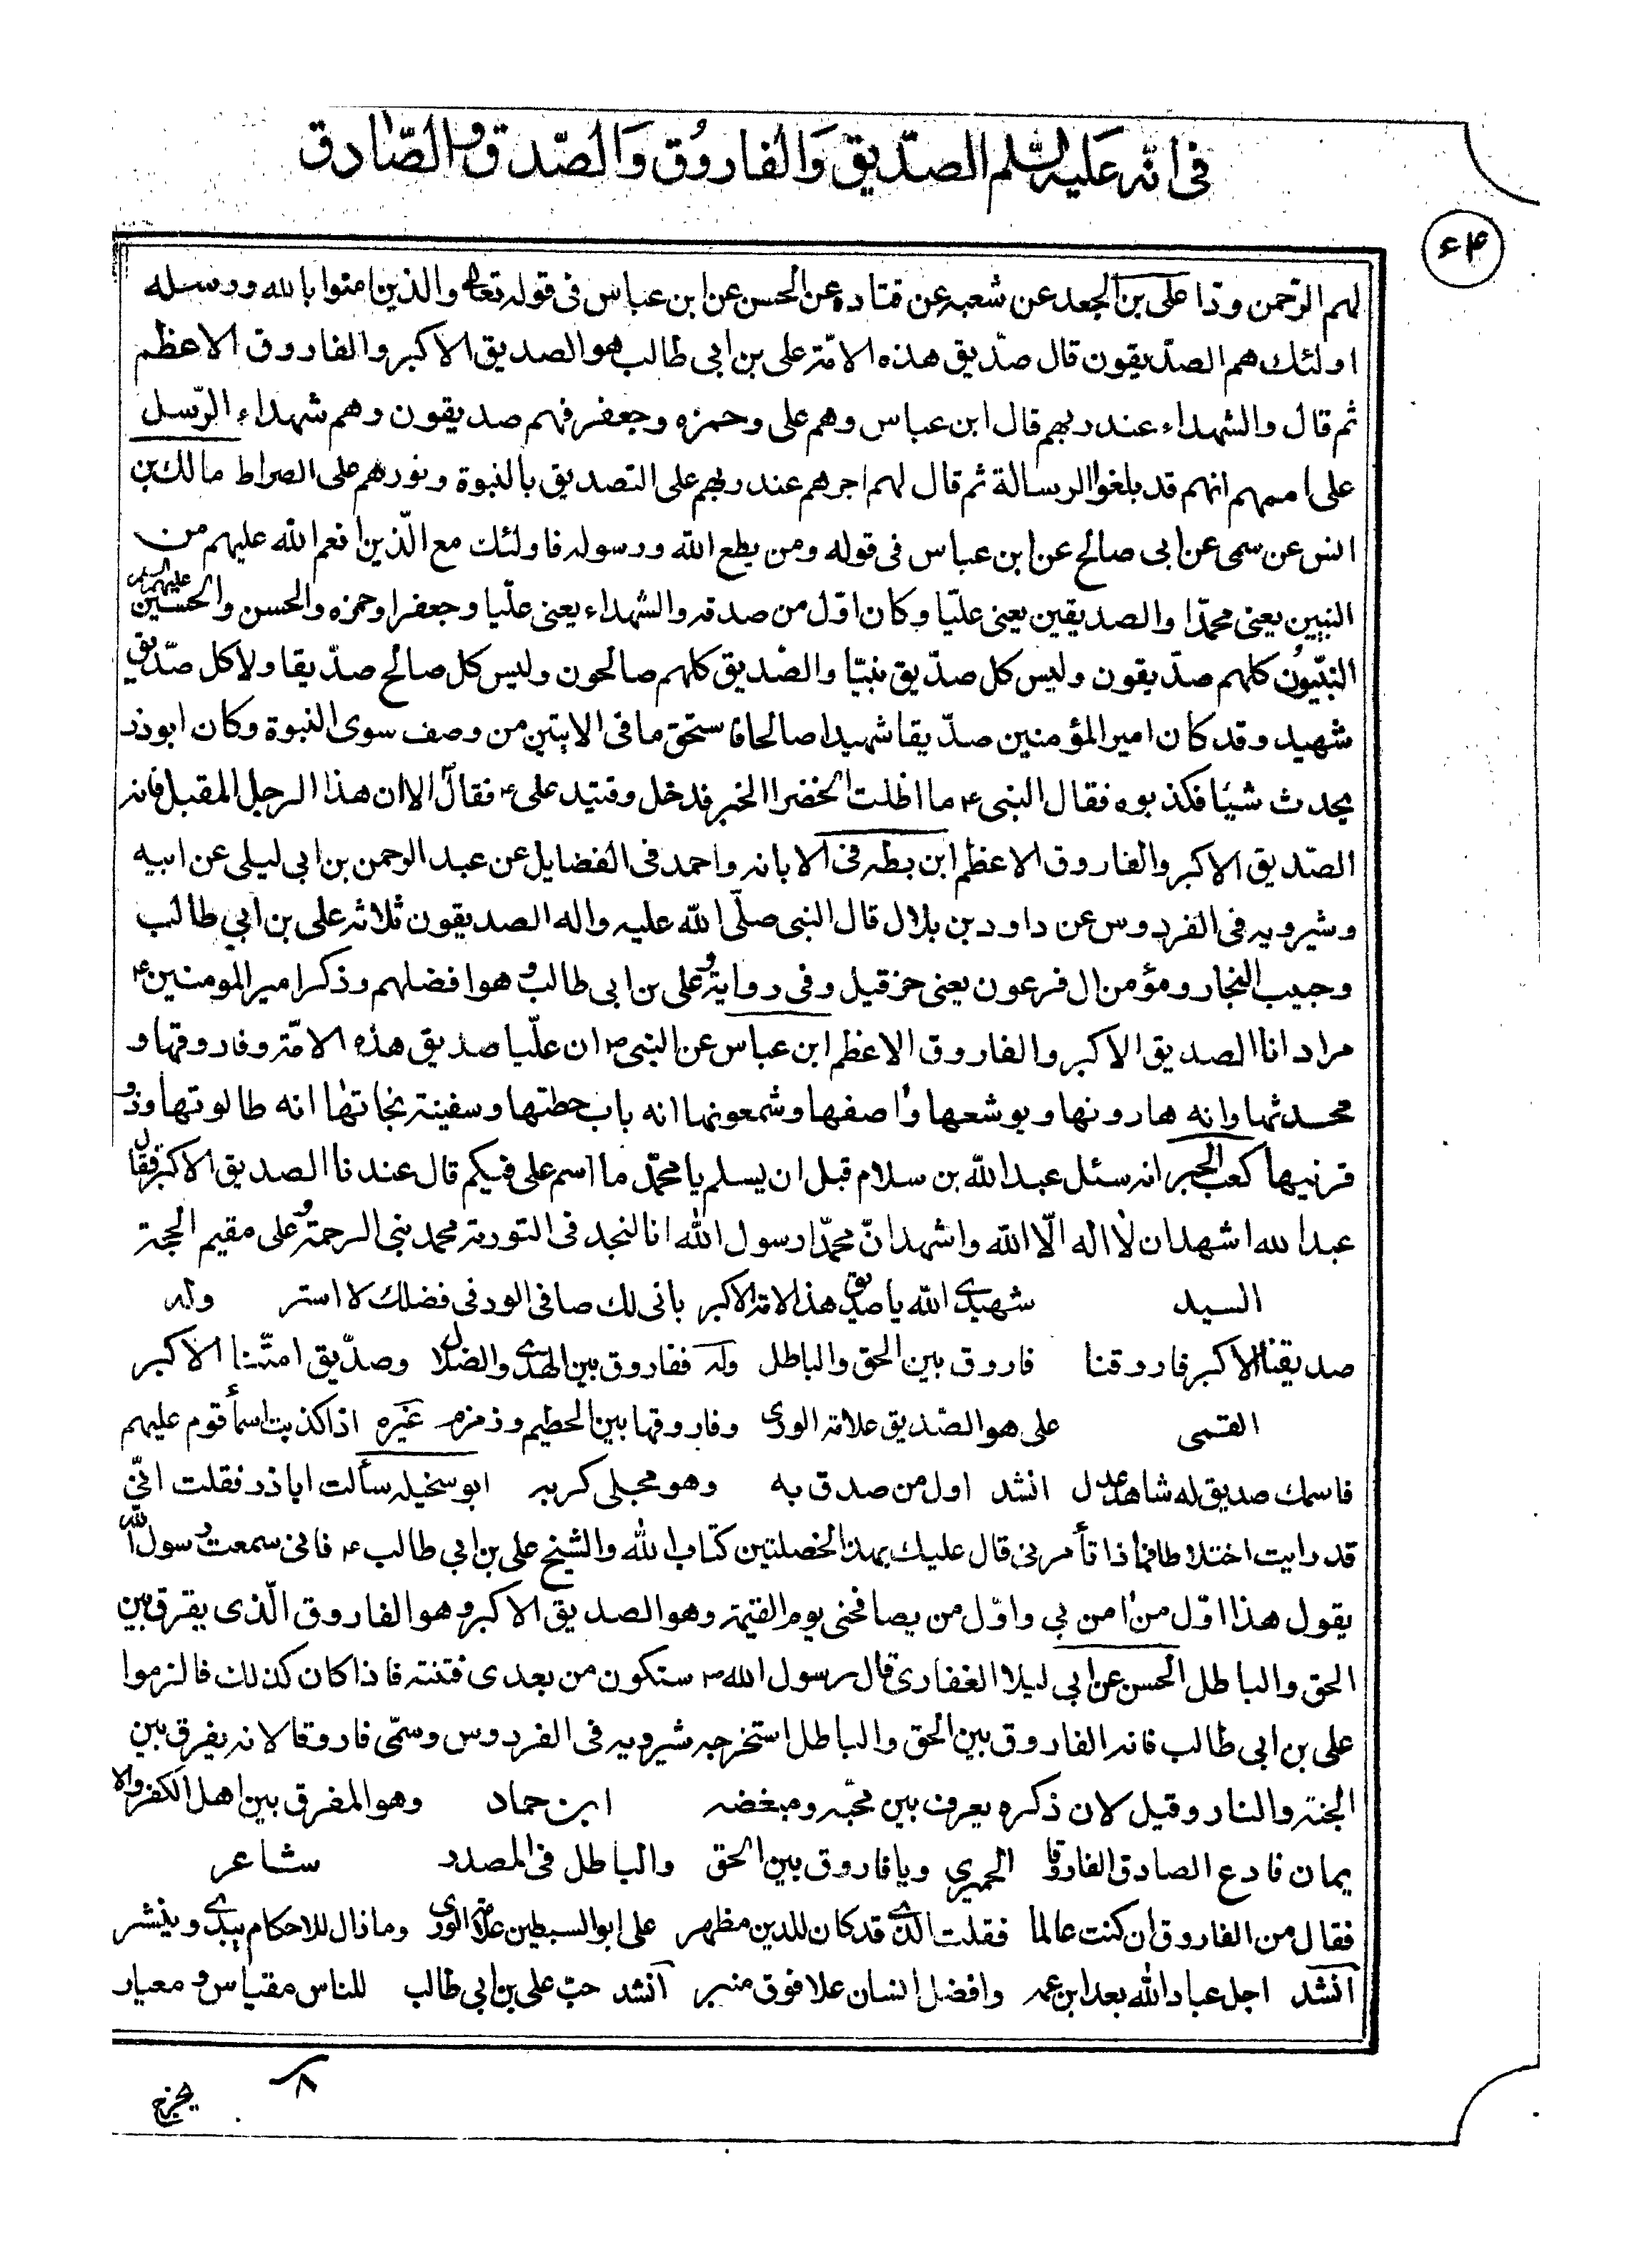 فى انه عليه السلم الصديق والفاروق والصدق والصادق
۴۶
لهم الرحمن ودا على بن الجعد عن شعبه عن قتاده عن الحسن عن ابن عباس فى قوله تعالى والذين امنوا بالله ورسله
اولئك هم الصديقون قال صديق هذه الامة على بن ابى طالب هو الصديق الاكبر والفاروق الاعظم
ثم قال والشهداء عند ربهم قال ابن عباس وهم على وحمزه وجعفر فهم صديقون وهم شهداء الرسل
على اممهم انهم قد بلغوا الرسالة ثم قال لهم اجرهم عند ربهم على التصديق بالنبوة ونورهم على الصراط مالك بن
انس عن سمى عن ابى صالح عن ابن عباس فى قوله ومن يطع الله ورسوله فاولئك مع الذين انعم الله عليهم من
النبيين يعنى محمدا والصديقين يعنى عليا وكان اول من صدقه والشهداء يعنى عليا وجعفرا وحمزه والحسن والحسين عليهم السلم
النبيون كلهم صديقون وليس كل صديق نبيا والصديق كلهم صالحون وليس كل صالح صديقا ولا كل صديق
شهيد وقد كان امير المؤمنين صديقا شهيدا صالحا فاستحق ما فى الايتين من وصف سوى النبوة وكان ابوذر
يحدث شيئا فكذبوه فقال النبى ص ما اظلت الخضرا الخبر فدخل وقتيد على ع فقال الا ان هذا الرجل المقبل فانه
الصديق الاكبر والفاروق الاعظم ابن بطه فى الابانه واحمد فى الفضايل عن عبد الرحمن بن ابى ليلى عن ابيه
وشيرويه فى الفردوس عن داود بن بلال قال النبى صلى الله عليه واله الصديقون ثلاثه على بن ابي طالب
وحبيب النجار ومؤمن ال فرعون يعنى حزقيل وفى رواية وعلى بن ابى طالب وهو افضلهم وذكر امير المومنين ع
مرارا انا الصديق الاكبر والفاروق الاعظم ابن عباس عن النبى ص ان عليا صديق هذه الامة وفاروقها و
محدثها وانه هارونها ويوشعها واصفها وشمعونها انه باب حطتها وسفينة نجاتها انه طالوتها وذو
قرنيها كعب الحبر انه سئل عبد الله بن سلام قبل ان يسلم يا محمد ما اسم على فيكم قال عندنا الصديق الاكبر فقال
عبد الله اشهد ان لا اله الا الله واشهد ان محمدا رسول الله انا لنجد فى التورية محمد نبى الرحمة وعلى مقيم الحجة
السيد شهيدى الله يا صديق هذا الامة الاكبر بانى لك صافى الود فى فضلك لا استر وله
صديقنا الاكبر فاروقنا فاروق بين الحق والباطل وله ففاروق بين الهدى والضلال وصديق امتنا الاكبر
القمى على هو الصديق علامة الورى وفاروقها بين الحطيم وزمزم غيره اذا كذبت اسما قوم عليهم
فاسمك صديق له شاهد عدل انشد اول من صدق به وهو مجلى كربه ابو سخيله سألت اباذر فقلت انى
قد رايت اختلاطا فماذا تأمرنى قال عليك بهذا الخصلتين كتاب الله والشيخ على بن ابى طالب ع فانى سمعت رسول الله
يقول هذا اول من امن بي واول من يصافحنى يوم القيمة وهو الصديق الاكبر وهو الفاروق الذى يفرق بين
الحق والباطل الحسن عن ابي ليلا الغفارى قال رسول الله ص ستكون من بعدى فتنته فاذا كان كذلك فالزموا
على بن ابى طالب فانه الفاروق بين الحق والباطل استخرجه شيرويه فى الفردوس وسمى فاروقا لانه يفرق بين
الجنة والنار وقيل لان ذكره يعرف بين محبه ومبغضه ابن حماد وهو المفرق بين اهل الكفر والا
يمان فادع الصادق الفاروقا الحميرى ويا فاروق بين الحق والباطل فى المصدر شاعر
فقال من الفاروق ان كنت عالما فقلت الذى قد كان للدين مظهر على ابو السبطين علامة الورى وما زال للاحكام يبدى وينشر
انشد اجل عباد الله بعد ابن عمه وافضل انسان علا فوق منبر انشد حب على بن ابي طالب للناس مقياس ومعيار
يخرج
۸